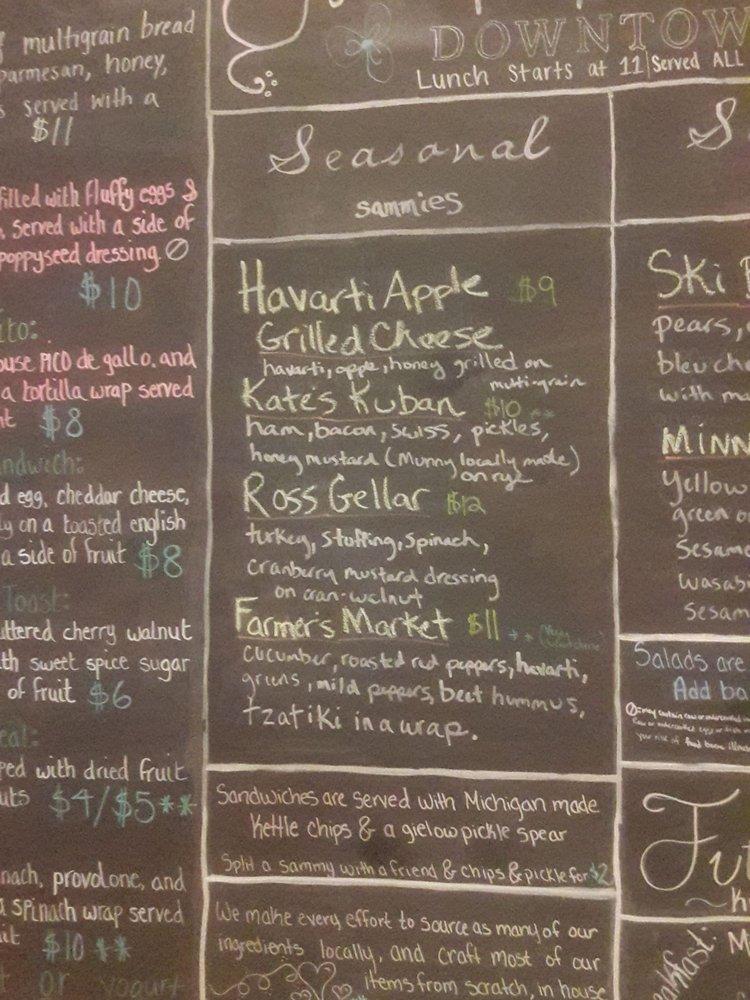 multigrain bread
parmesan, honey,
served with a
$11
filled with fluffy eggs &
served with a side of
poppyseed dressing.
$10
ouse PICO de gallo, and
a tortilla wrap served
$8
ndwich:
d egg, cheddar cheese,
ly on a toasted english
a side of fruit $8
Toast:
uttered cherry walnut
th sweet spice sugar
of fruit $6
eal:
ped with dried fruit
uts $4/$5**
nach, provolone, and
a spinach wrap served
$10 **
or yogurt
DOWNTOW
Lunch Starts at 11|Served ALL
Seasonal
sammies
Havarti Apple $9
Grilled Cheese
havarti, apple, honey grilled on
multi-grain
Kate's Kuban $10 **
ham, bacon, swiss, pickles,
honey mustard (Munny locally made)
on rye
Ross Gellar $12
turkey, stuffing, spinach,
cranberry mustard dressing
on cran-walnut
Farmer's Market $11 **
cucumber, roasted red peppers, havarti,
greens, mild peppers, beet hummus,
tzatiki in a wrap.
Sandwiches are served with Michigan made
Kettle chips & a gielow pickle spear
Split a sammy with a friend & chips & pickle for $2
We make every effort to source as many of our
ingredients locally, and craft most of our
items from scratch, in house
S
Ski
pears,
bleu che
with ma
MINN
Yellow
green o
Sesame
wasab
sesam
Salads are
Add ba
Fu